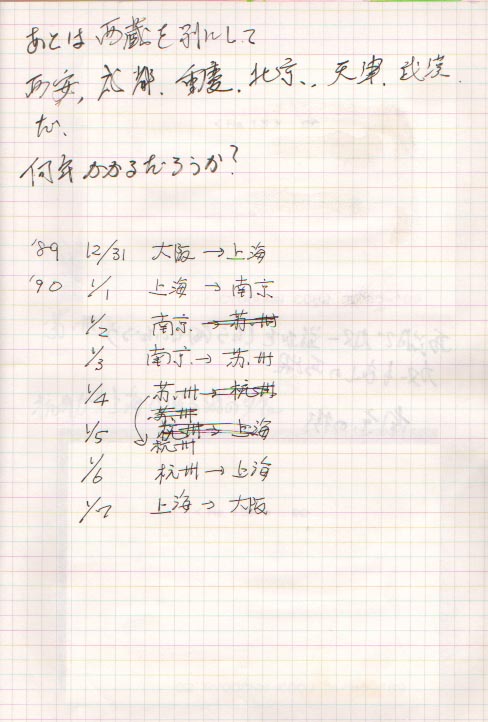 あとは西蔵を別にして
西安、成都、重慶、北京、、天津、武漢、
だ、
何年かかるだろうか?
'89 12/31 大阪→上海
'90 1/1 上海→南京
1/2 南京→蘇州
1/3 南京→蘇州
1/4 蘇州→杭州
蘇州
1/5 杭州→上海
杭州
1/6 杭州→上海
1/7 上海→大阪